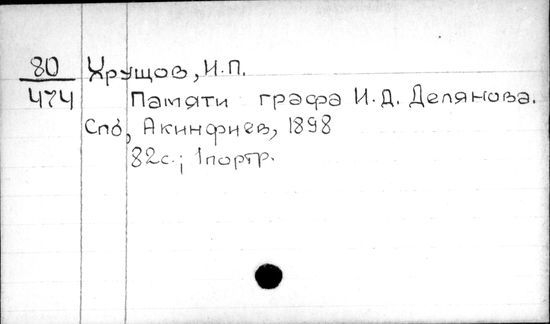 80 Хрущов, И.П.
474 Памяти графа И.Д. Делянова.
Спб, Акинфиев, 1898
82с.; 1портр.